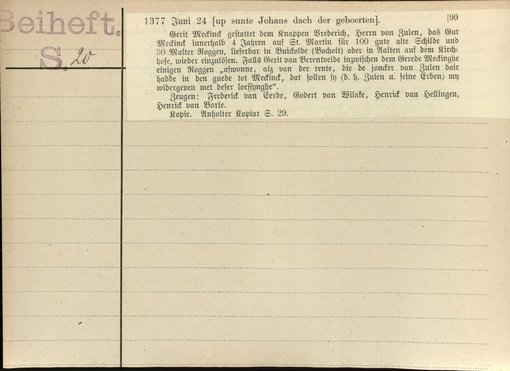 Beiheft.
S. 20
1377 Juni 24 [up sunte Johans dach der geboerten]. [99
Gerit Meckinck gestattet dem Knappen Vrederich, Herrn von Zulen, das Gut
Meckinck innerhalb 4 Jahren auf St. Martin für 100 gute alte Schilde und
50 Malter Roggen, lieferbar in Buickolde (Bocholt) oder in Aalten auf dem Kirch-
hofe, wieder einzulösen. Falls Gerit van Berentvelde inzwischen dem Gerede Meckinghe
einigen Roggen „afwonne, alz van der rente, die de joncker van Zulen dair
hadde in den guede tot Meckinck, dat sollen sy (d. h. Zulen u. seine Erben) my
widergeven met deser loessynghe“.
Zeugen: Frederick van Eerde, Godert van Wilake, Henrick van Hellingen,
Henrick van Barle.
Kopie. Anholter Kopiar S. 29.